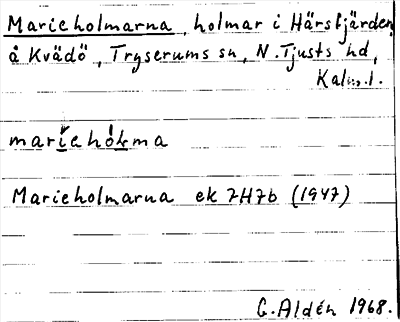 Marieholmarna, holmar i Härsfjärden,
å Kvädö, Tryserums sn, N. Tjusts hd,
Kalm. l.
marìehólma
Marieholmarna ek 7H7b (1947)
G. Aldén 1968.